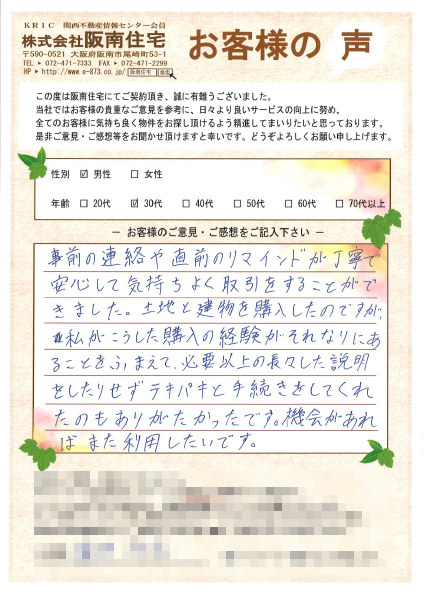 KRIC 関西不動産情報センター会員
株式会社阪南住宅
〒590-0521 大阪府阪南市尾崎町53-1
TEL ▶ 072-471-7333 FAX ▶ 072-471-2999
HP ▶ http://www.e-873.co.jp/ 阪南住宅 検索
お客様の 声
この度は阪南住宅にてご契約頂き、誠に有難うございました。
当社ではお客様の貴重なご意見を参考に、日々より良いサービスの向上に努め、
全てのお客様に気持ち良く物件をお探し頂けるよう精進してまいりたいと思っております。
是非ご意見・ご感想等をお聞かせ頂けますと幸いです。どうぞよろしくお願い申し上げます。
性別 ☑ 男性 □ 女性
年齢 □ 20代 ☑ 30代 □ 40代 □ 50代 □ 60代 □ 70代以上
― お客様のご意見・ご感想をご記入下さい ―
事前の連絡や直前のリマインドが丁寧で
安心して気持ちよく取引をすることがで
きました。土地と建物を購入したのですが、
私がこうした購入の経験がそれなりにあ
ることをふまえて、必要以上の長々した説明
をしたりせずテキパキと手続きをしてくれ
たのもありがたかったです。機会があれ
ばまた利用したいです。